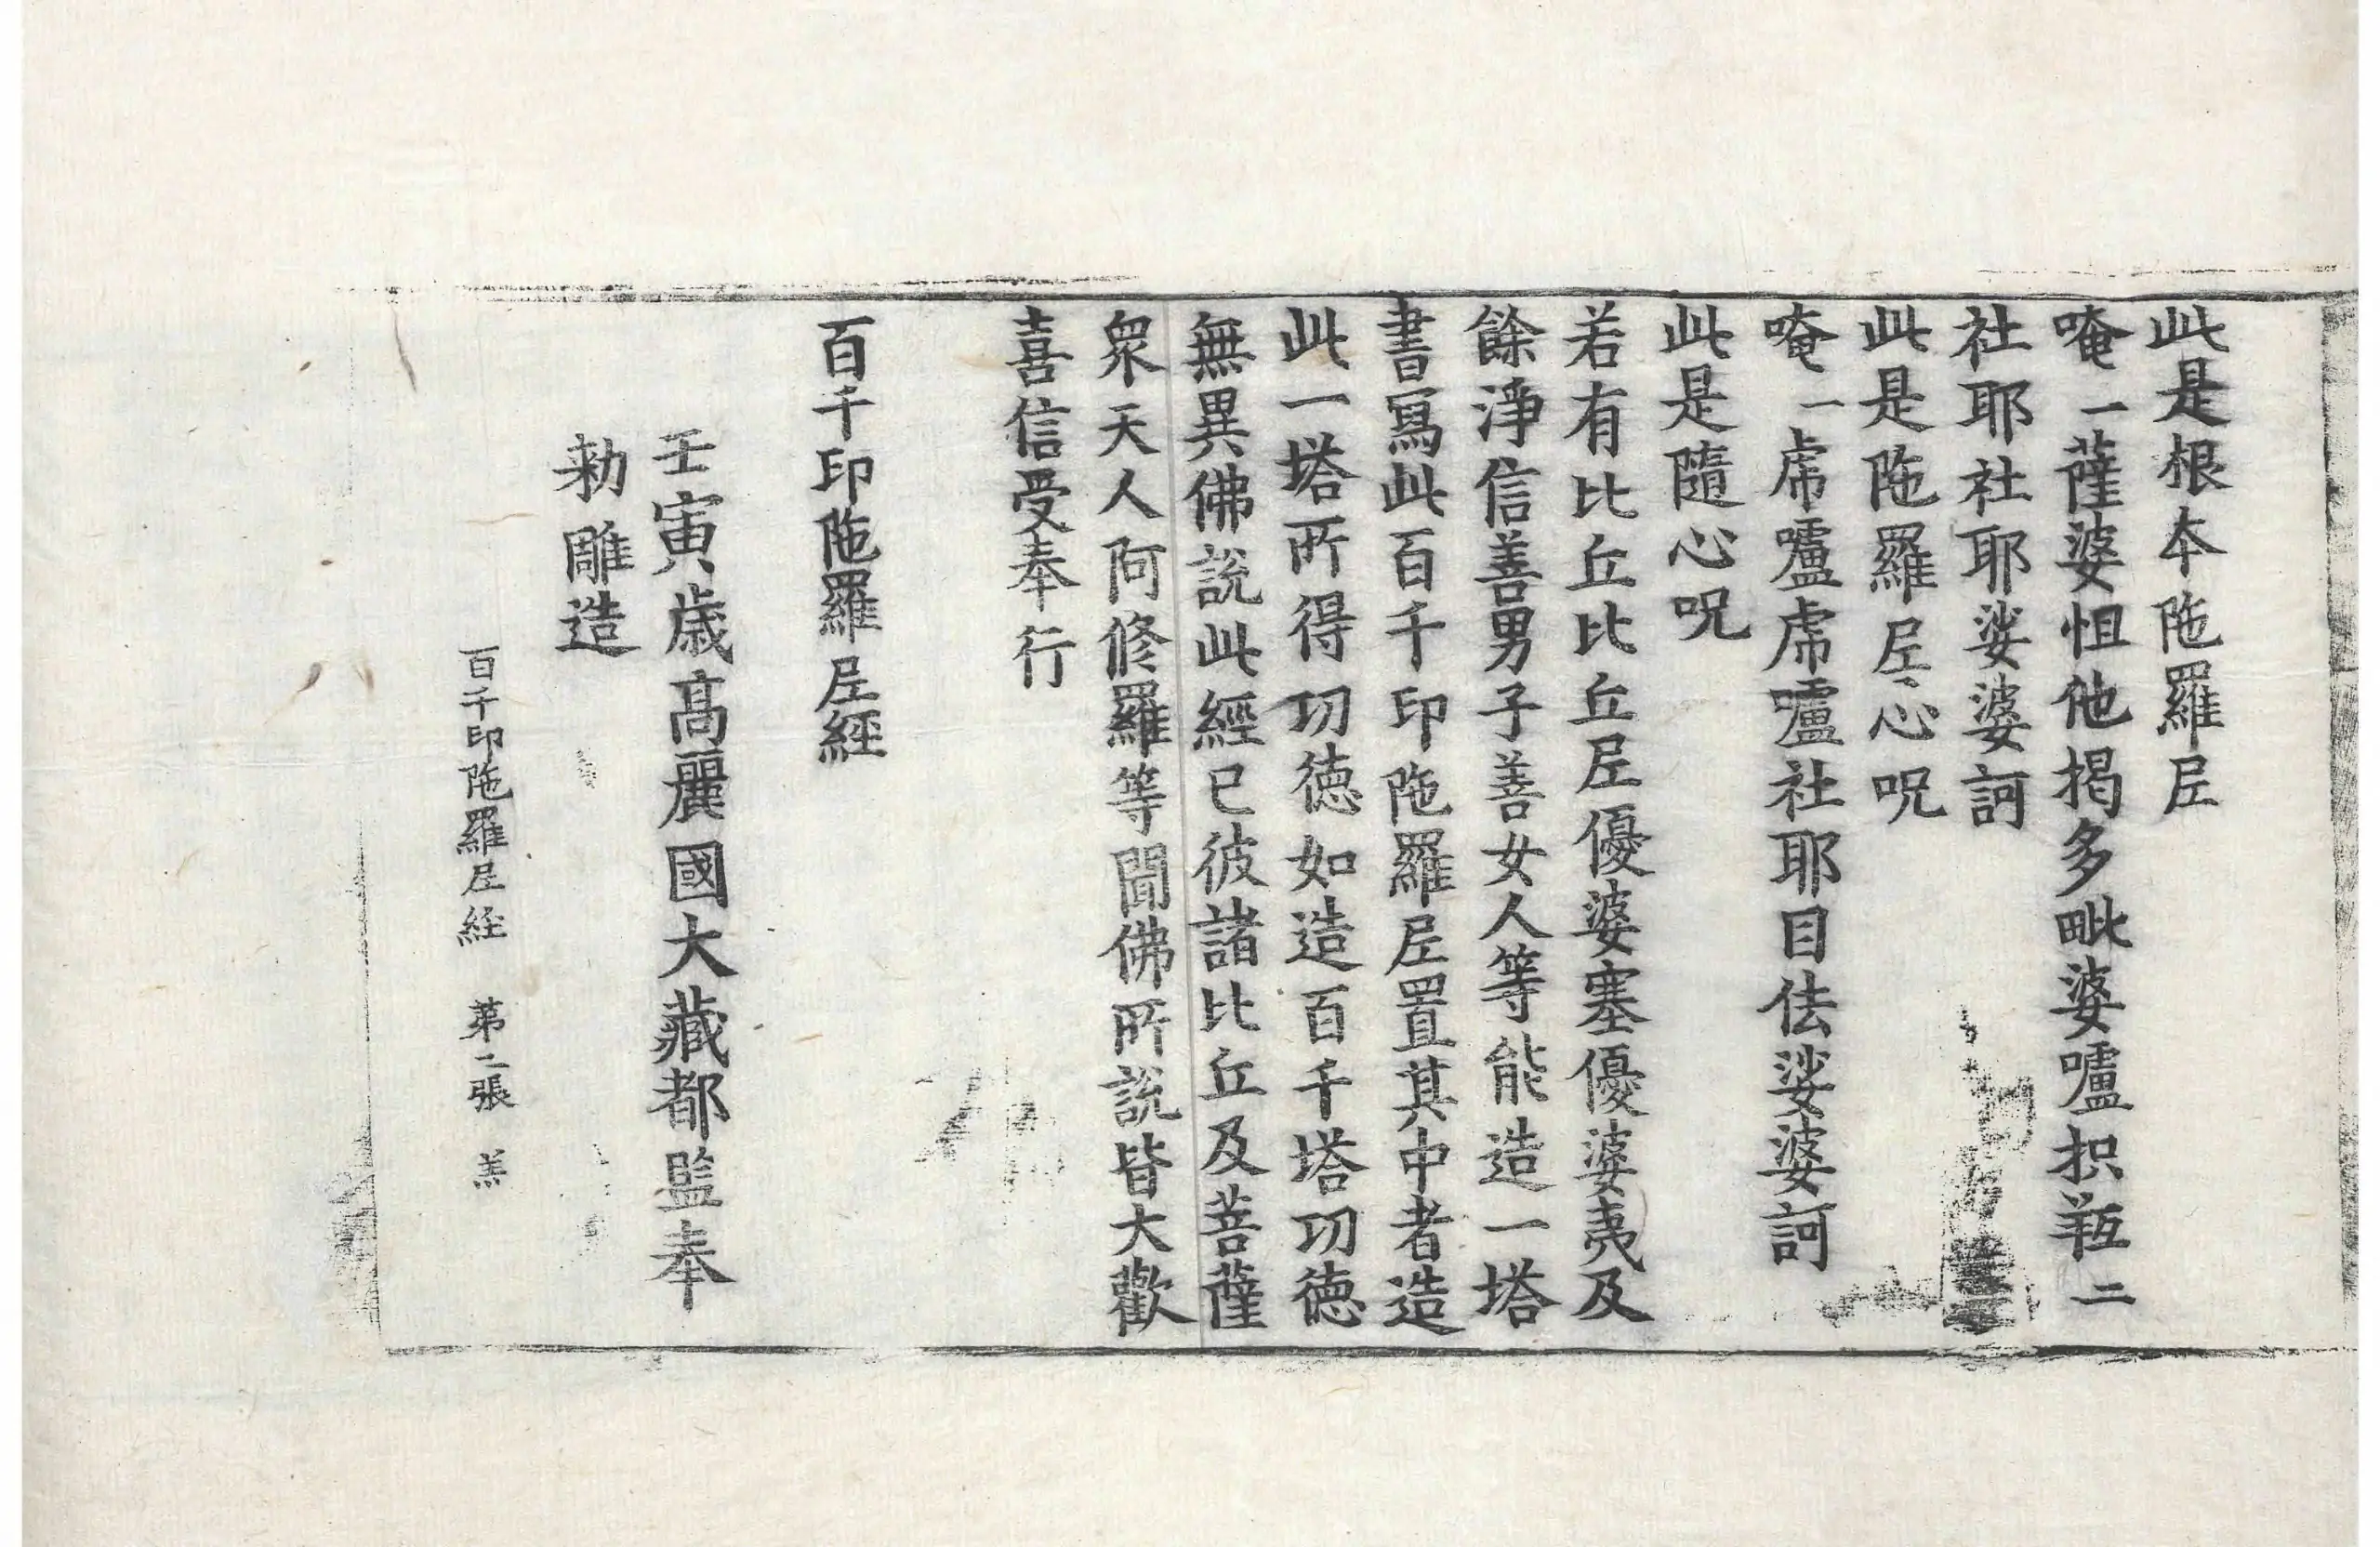 此是根本陁羅𡰱
唵一薩婆怛他揭多毗婆嚧抧羝二
社耶社耶娑婆訶
此是陁羅𡰱心呪
唵一虎嚧虎嚧社耶目佉娑婆訶
此是隨心呪
若有比丘比丘𡰱優婆塞優婆夷及
餘淨信善男子善女人等能造一塔
書寫此百千印陁羅𡰱置其中者造
此一塔所得功德如造百千塔功德
無異佛說此經已彼諸比丘及菩薩
眾天人阿修羅等聞佛所說皆大歡
喜信受奉行
百千印陁羅𡰱經
壬寅歲高麗國大藏都監奉
勅雕造
百千印陁羅𡰱経 苐二張 羔